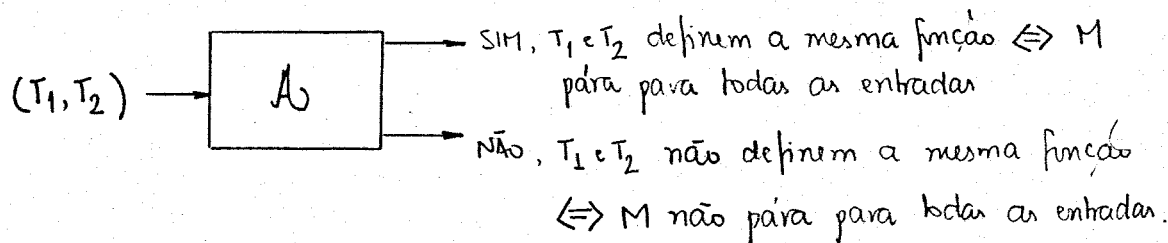 SIM, T₁ e T₂ definem a mesma função ⇔ M
pára para todas as entradas
(T₁, T₂)
A
NÃO, T₁ e T₂ não definem a mesma função
⇔ M não pára para todas as entradas.